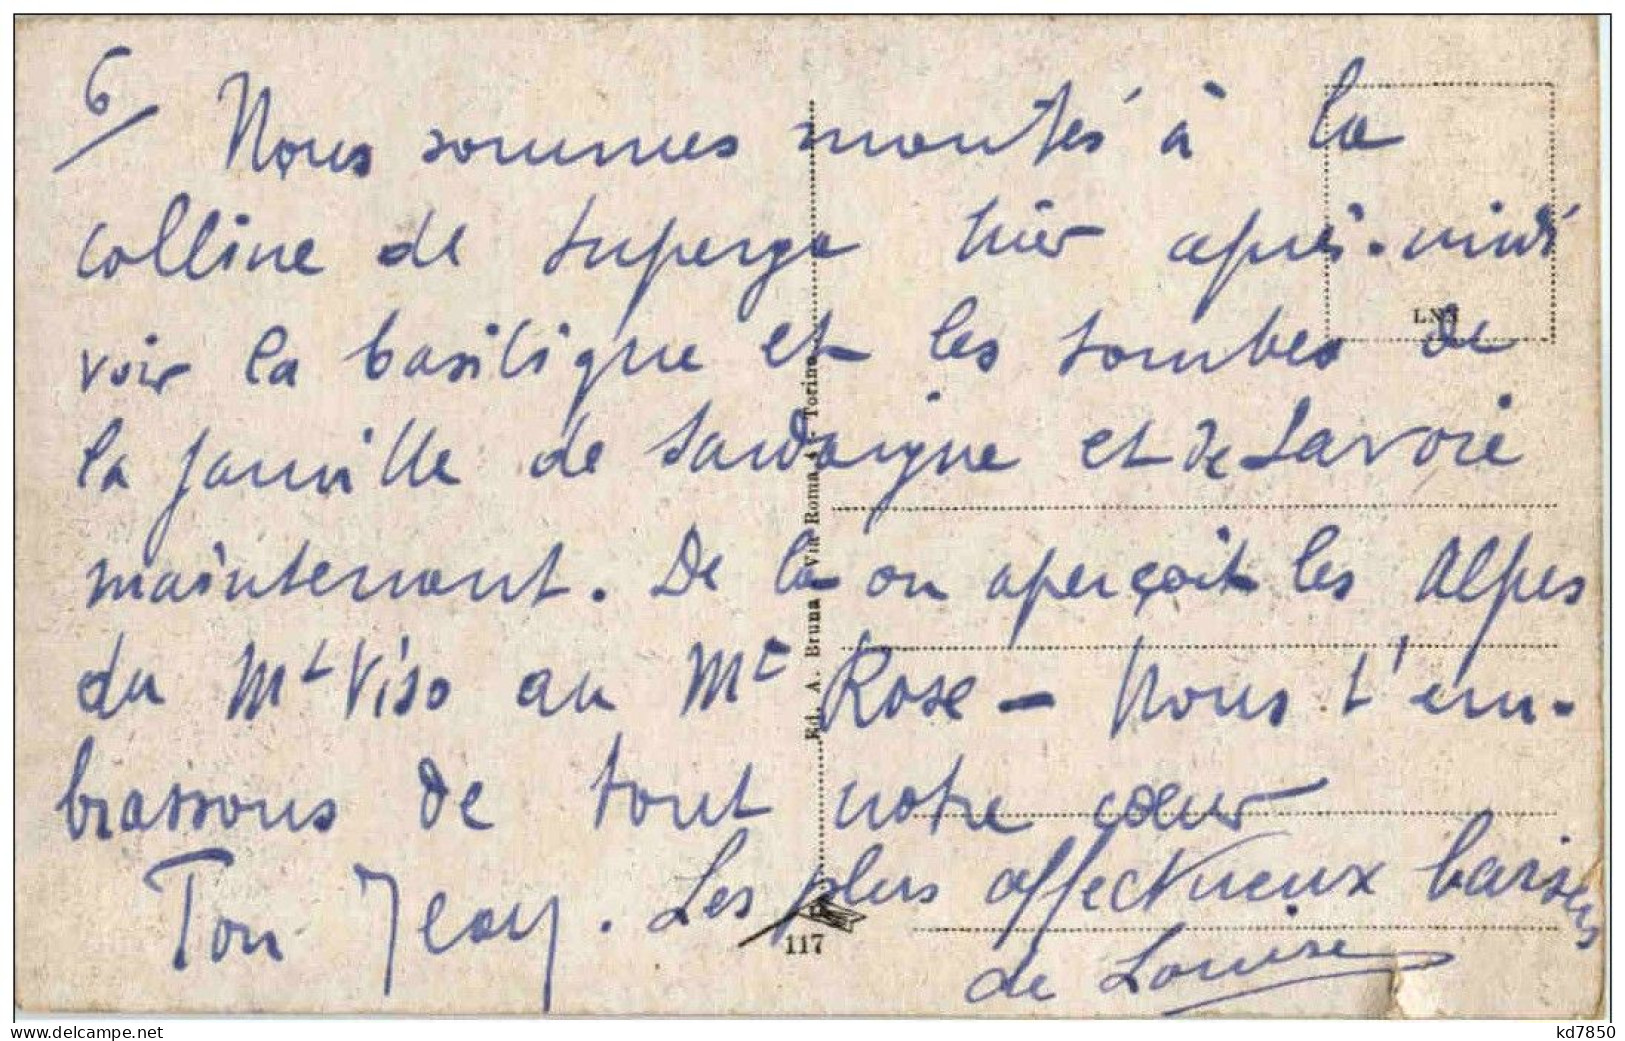 6/ Nous sommes montés à la
colline de Superga hier après-midi
voir la basilique et les tombes de
la famille de Sardaigne et de Savoie
maintenant. De là on aperçoit les Alpes
du Mt Viso au Mt Rose - Nous t'em-
brassons de tout notre cœur
Ton Jean. Les plus affectueux baisers
de Louise
Ed. A. Bruna Via Roma, Torino
117
www.delcampe.net
kd7850